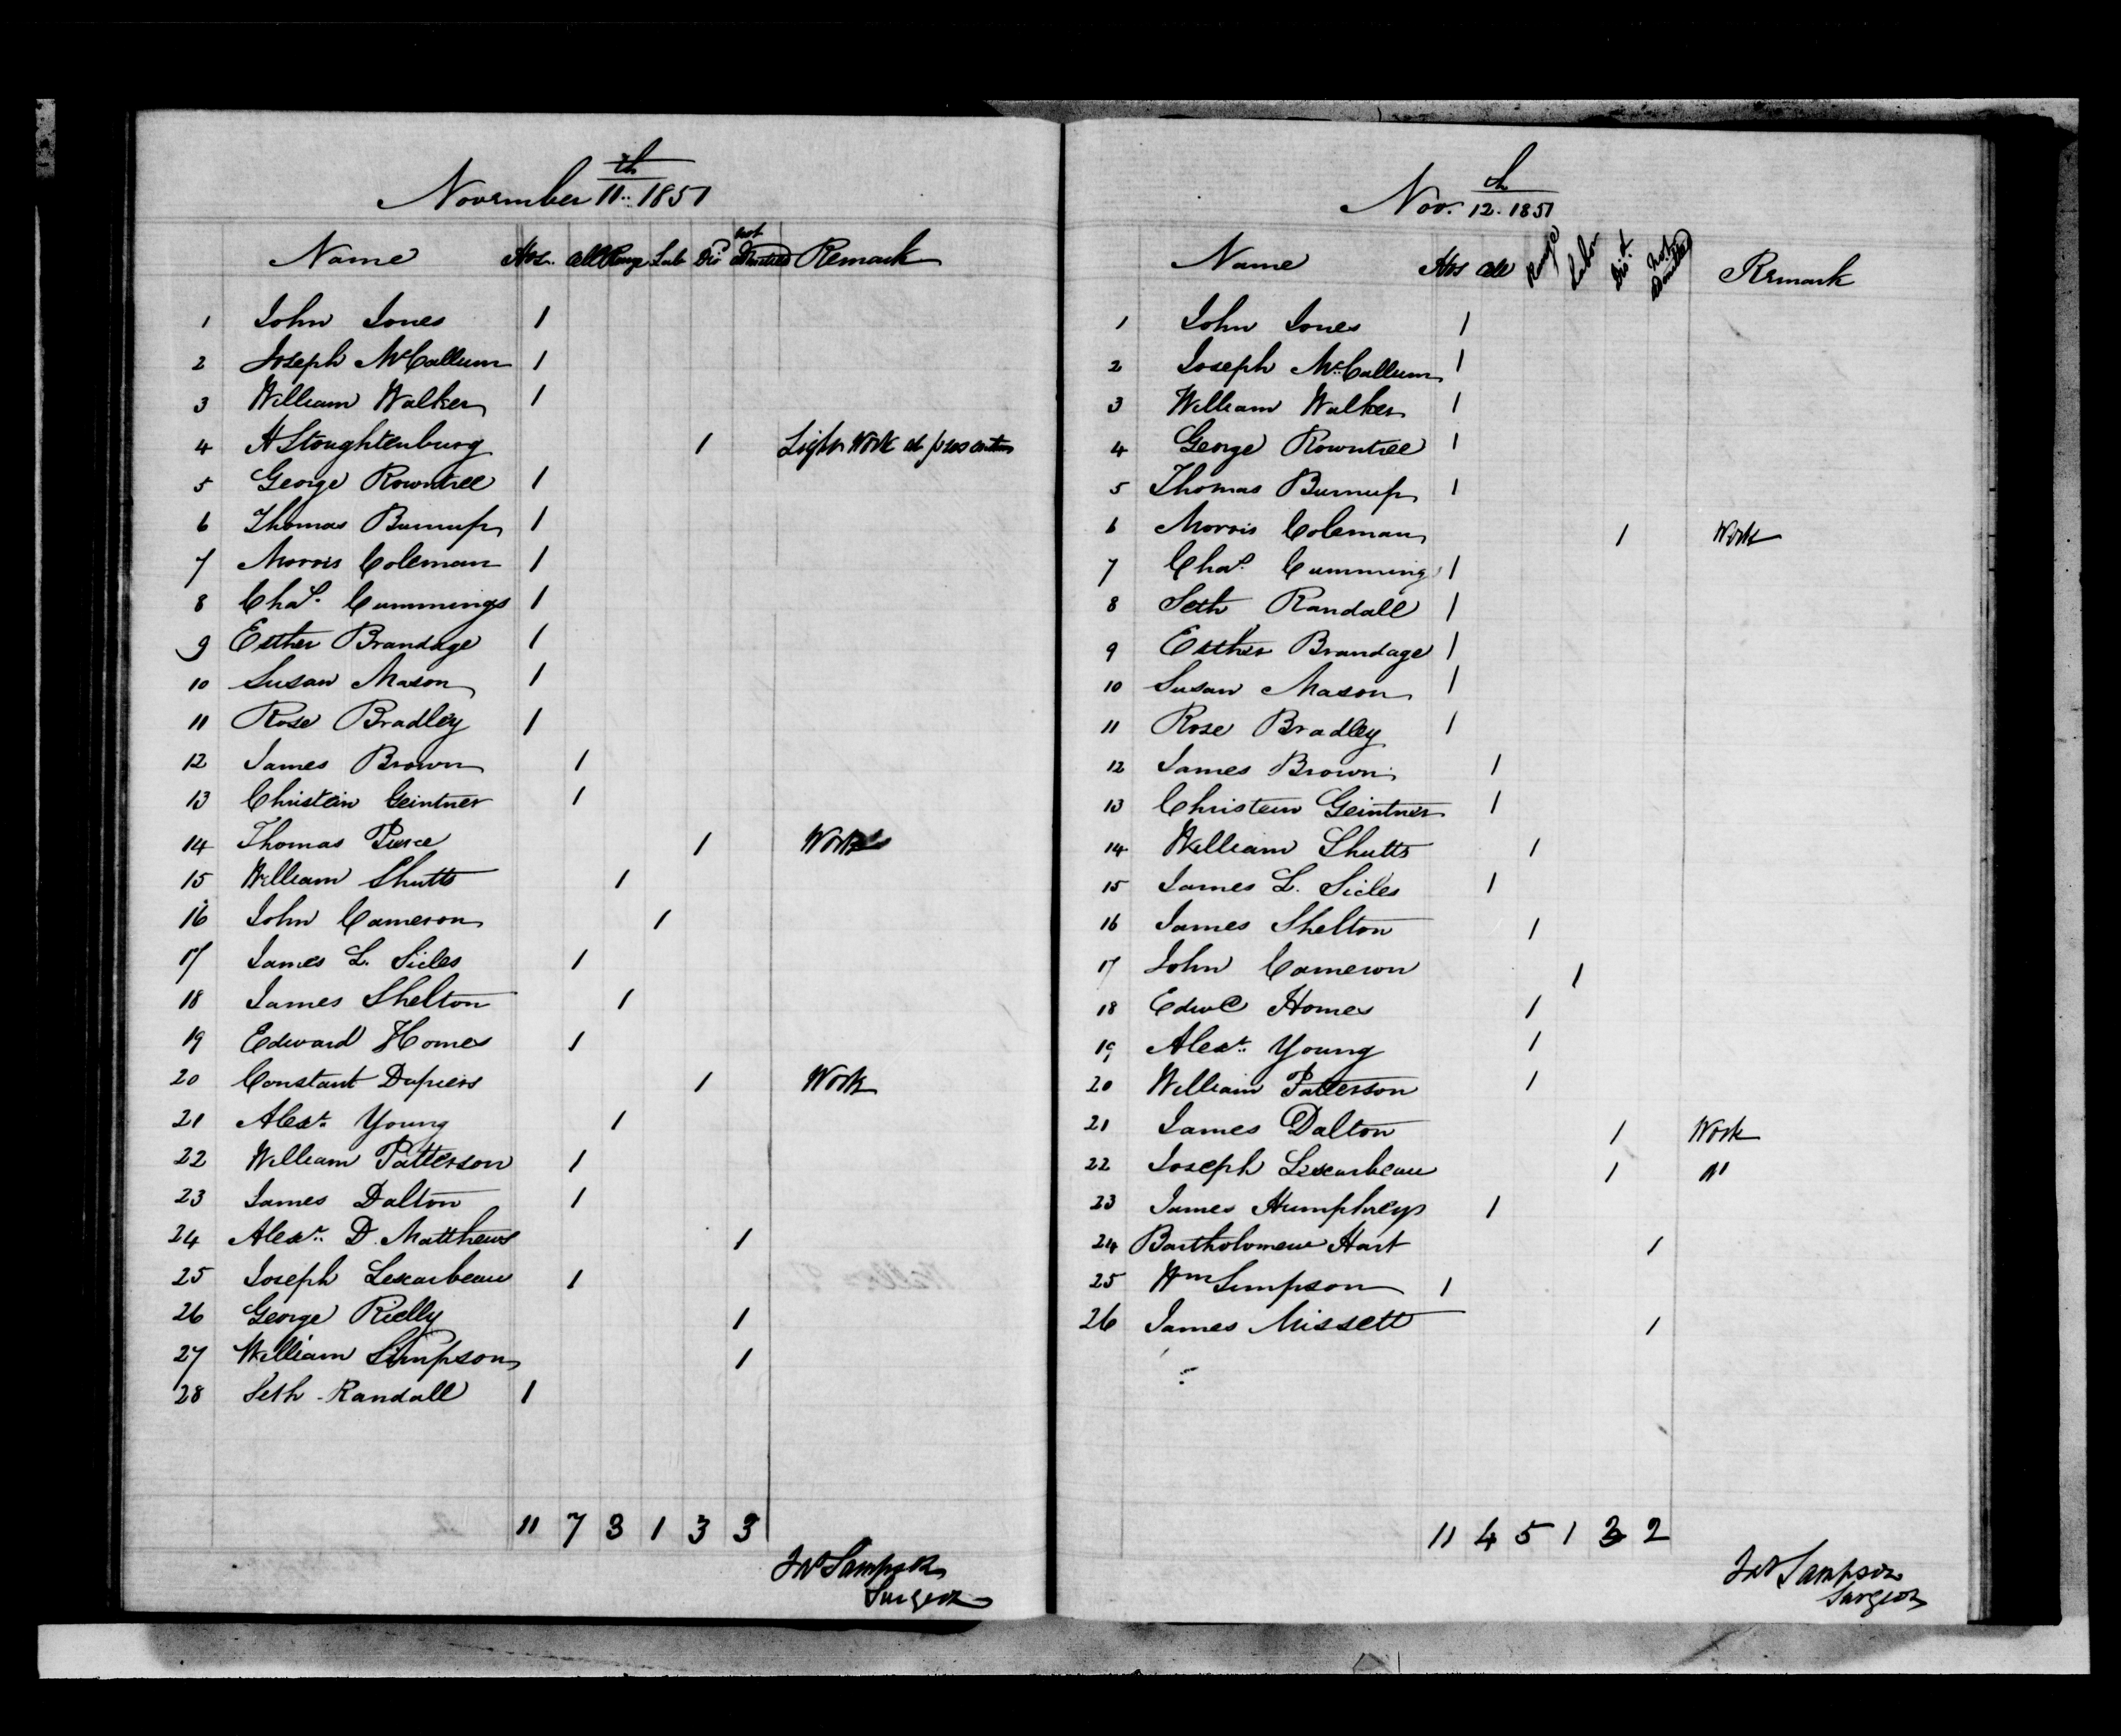 November 11th 1851
Name Hos. Cell Range Lab Dis not Admitted Remark
1 John Jones 1
2 Joseph McCallum 1
3 William Walker 1
4 H Stoughtenburg 1 Light Work at
5 George Rowntree 1
6 Thomas Burnup 1
7 Morris Coleman 1
8 Chas. Cummings 1
9 Esther Brandage 1
10 Susan Mason 1
11 Rose Bradley 1
12 James Brown 1
13 Christein Geintner 1
14 Thomas Pierce 1 Work
15 William Shutts 1
16 John Cameron 1
17 James L. Sicles 1
18 James Shelton 1
19 Edward Homes 1
20 Constant 1 Work
21 Alexr. Young 1
22 William Patterson 1
23 James Dalton 1
24 Alexr. D. Matthews 1
25 Joseph Lescarbeau 1
26 George Rielly 1
27 William Simpson 1
28 Seth Randall 1
11 7 3 1 3 3
Jas Sampson
Surgeon
Nov. 12th 1851
Name Hos Cell Range Labor Disd not Admitted Remark
1 John Jones 1
2 Joseph McCallum 1
3 William Walker 1
4 George Rowntree 1
5 Thomas Burnup 1
6 Morris Coleman 1 Work
7 Chas. Cummings 1
8 Seth Randall 1
9 Esther Brandage 1
10 Susan Mason 1
11 Rose Bradley 1
12 James Brown 1
13 Christein Geintner 1
14 William Shutts 1
15 James L. Sicles 1
16 James Shelton 1
17 John Cameron 1
18 Edwd Homes 1
19 Alexr. Young 1
20 William Patterson 1
21 James Dalton 1 Work
22 Joseph Lescarbeau 1 "
23 James Humphreys 1
24 Bartholomew Hart 1
25 Wm Simpson 1
26 James Missett 1
11 4 5 1 3 2
Jas Sampson
Surgeon